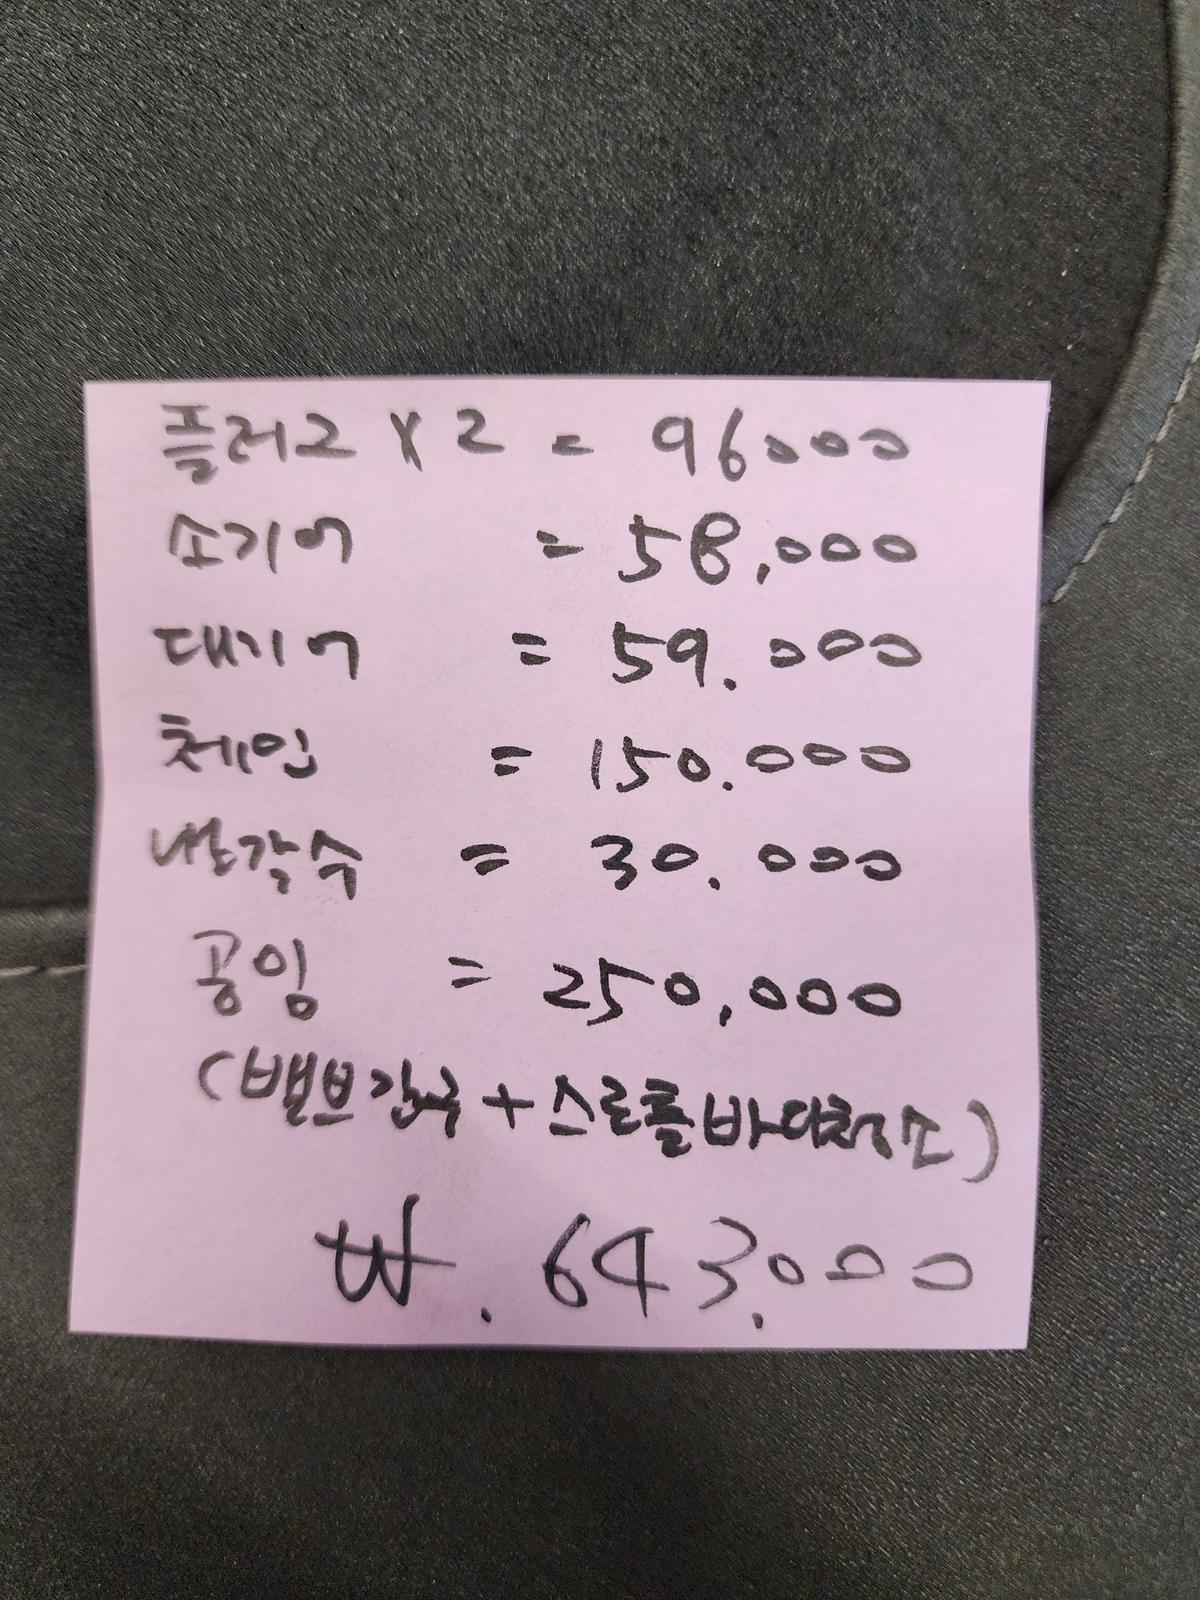 플러그 X 2 = 96000
소기어 = 58,000
대기어 = 59.000
체인 = 150.000
냉각수 = 30.000
공임 = 250,000
(밸브간극 + 스로틀바디청소)
₩. 643,000